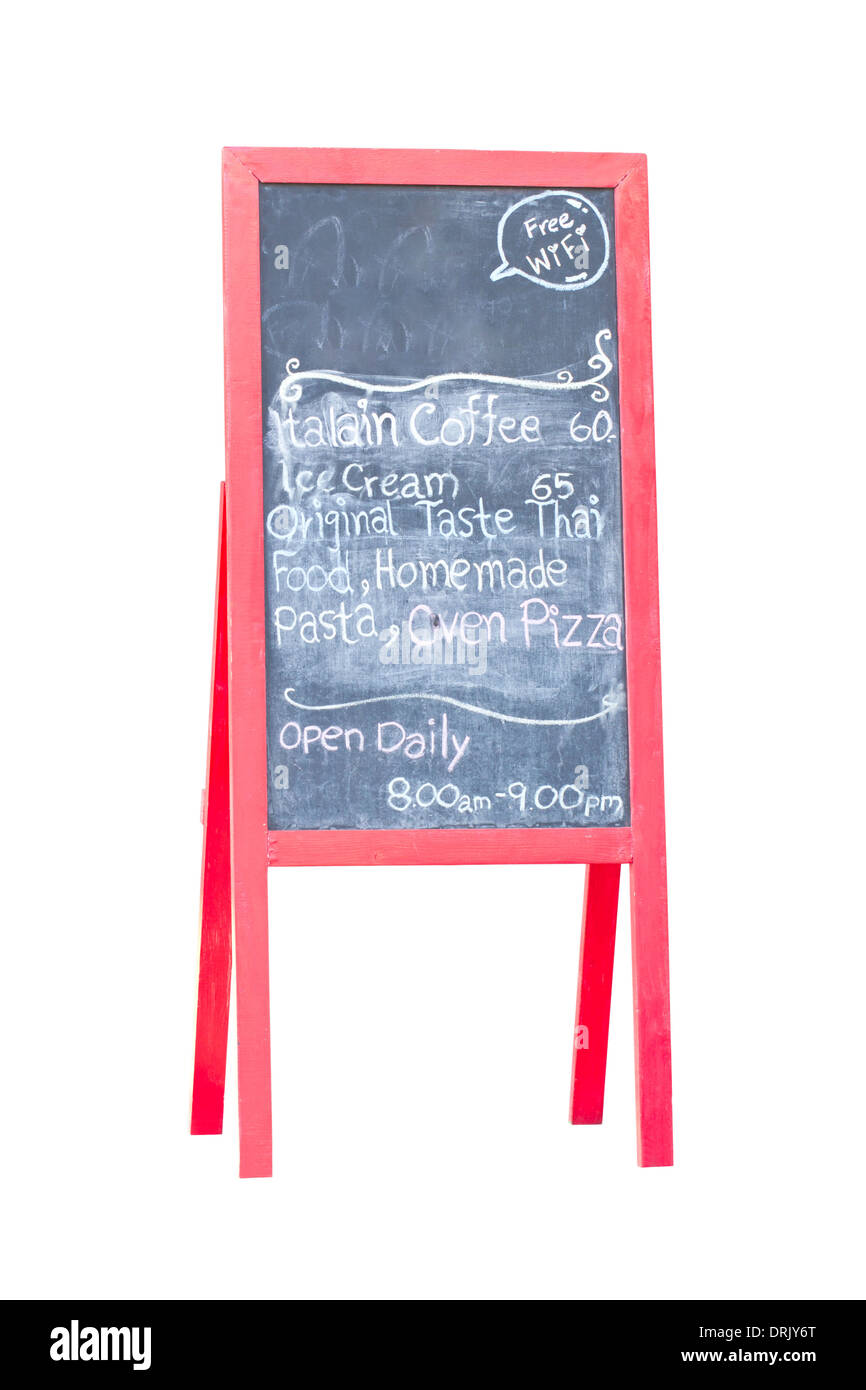 Free
WiFi
Italain Coffee 60.-
Ice Cream 65
Original Taste Thai
Food, Homemade
Pasta, Oven Pizza
Open Daily
8.00am-9.00pm
a
alamy
a
alamy
Image ID: DRJY6T
www.alamy.com